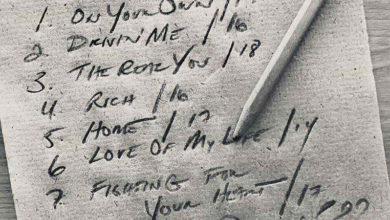 1. ON YOUR OWN / 17
2. DRIVIN ME / 16
3. THE REAL YOU / 18
4 RICH / 16
5. HOME / 17
6 LOVE OF MY LIFE / 14
7. FIGHTING FOR
YOUR HEART / 17